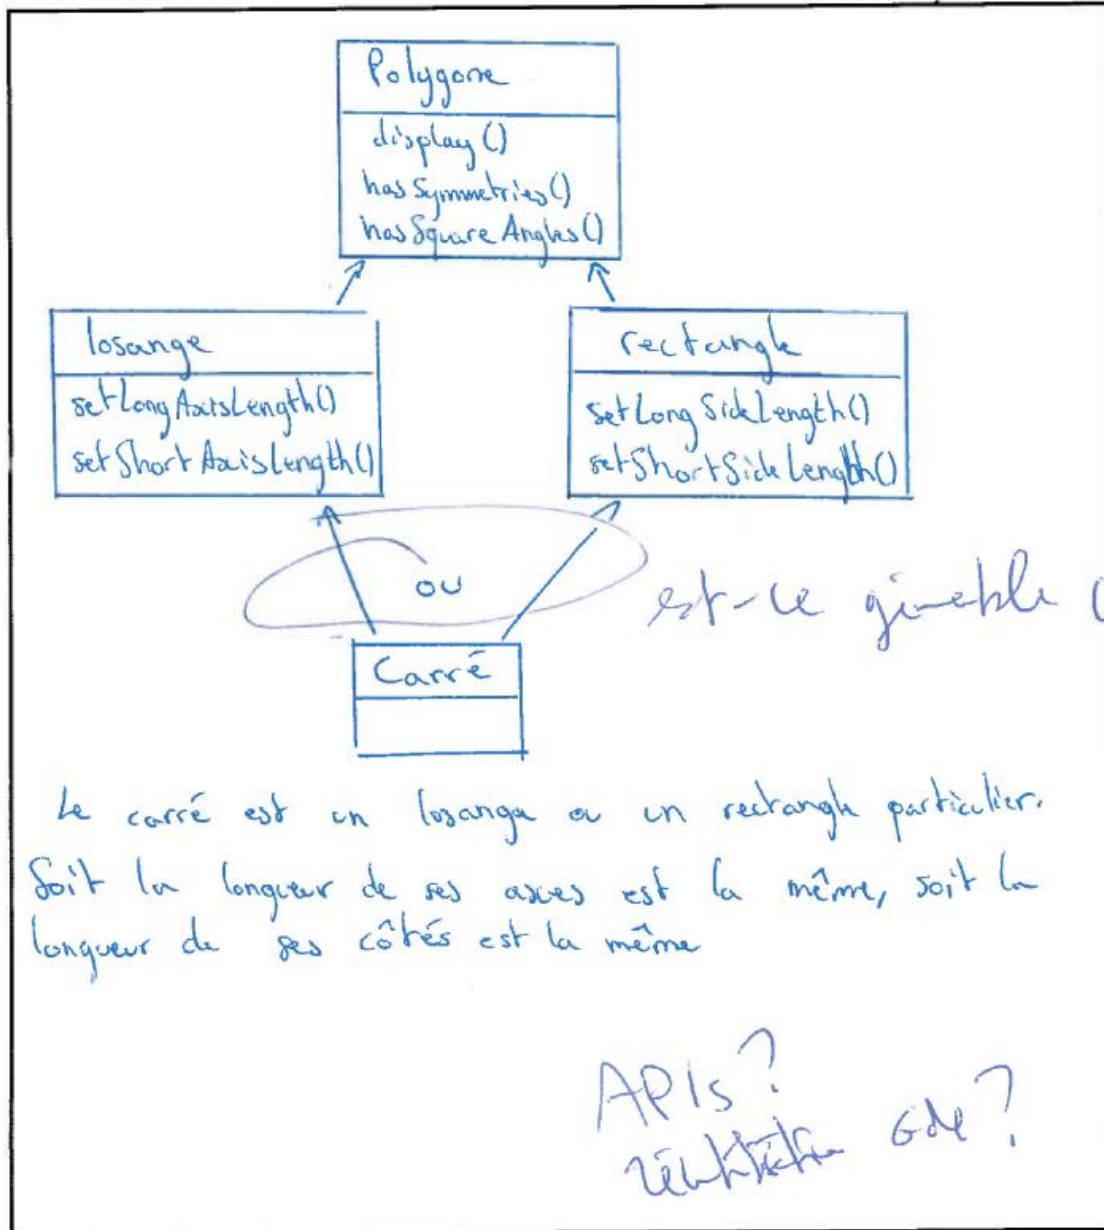 Polygone
display()
hasSymmetries()
hasSquareAngles()
losange
setLongAxisLength()
setShortAxisLength()
rectangle
setLongSideLength()
setShortSideLength()
ou
est-ce
Carré
Le carré est un losange ou un rectangle particulier.
Soit la longueur de ses axes est la même, soit la
longueur de ses côtés est la même
APIs ?
code ?